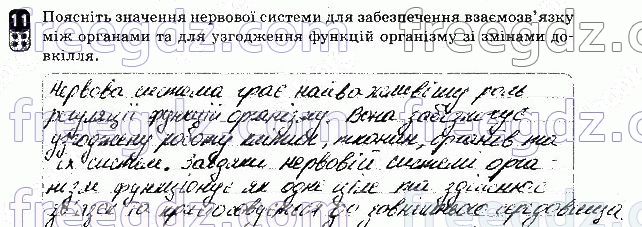 11 Поясніть значення нервової системи для забезпечення взаємозв'язку
між органами та для узгодження функцій організму зі змінами до-
вкілля.
Нервова система грає найважливішу роль
регуляції функцій організму. Вона забезпечує
узгоджену роботу клітин, тканин, органів та
їх систем. Завдяки нервовій системі орга-
нізм функціонує як одне ціле та здійснює
зв'язок та пристосовується до зовнішнього середовища.
freegdz.com